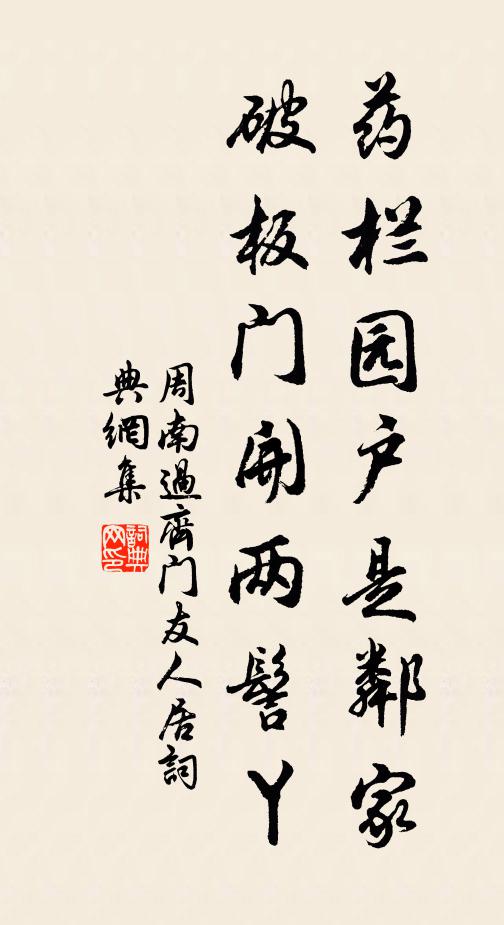 药栏园户是鄰家
破板门開两髻丫
周南過齊门友人居詞
典網集
詞典
网印